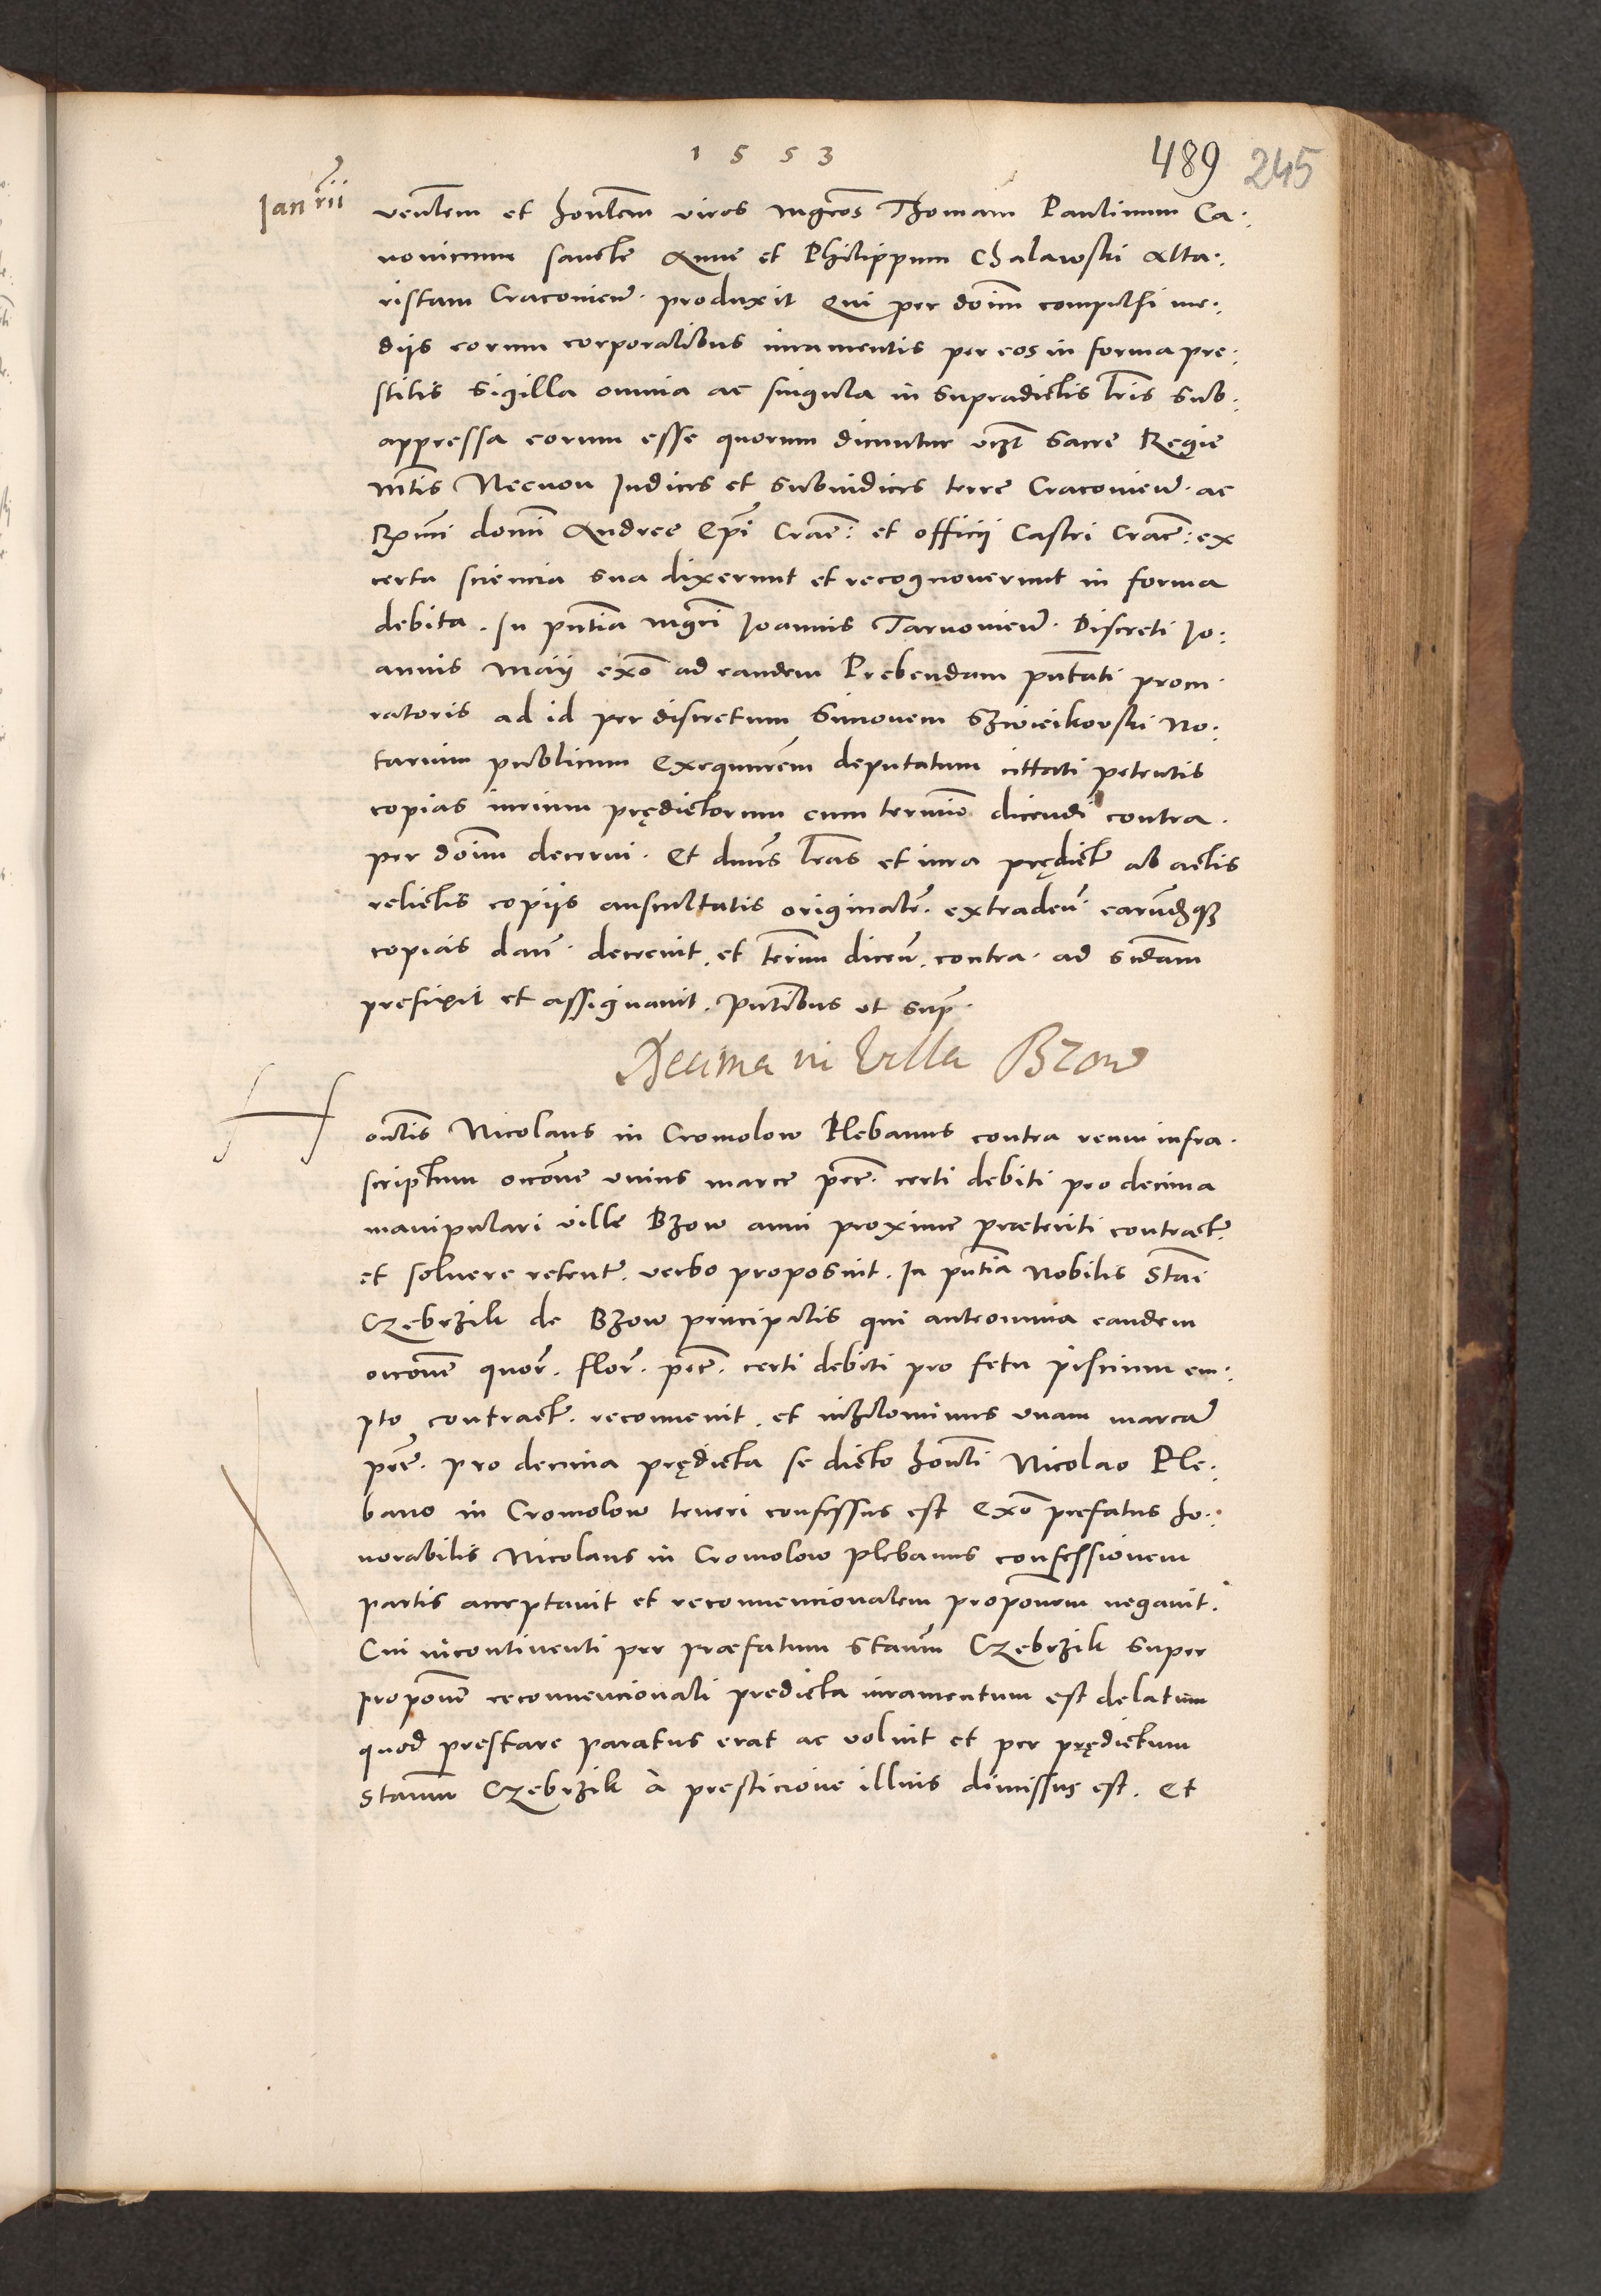 1553
489 245
Ianrii
venlem et honlem viros mgros Thomam Paulinum Ca:
nonicum sancte Anne et Philippum Chalawski Alta:
ristam Cracovien. produxit Qui per doim compulsi me:
diis eorum corporalibus iuramentis per eos in forma pre:
stitis sigilla omnia ac singula in supradictis lris sub:
appressa eorum esse quorum dicuntur vizt Sacre Regie
mtis Necnon Iudicis et subiudicis terre Cracovien. ac
Rxmi domi Andree Epi Crac: et officii Castri Crac: ex
certa sciencia sua dixerunt et recognoverunt in forma
debita. In pntia mgri Ioannis Tarnovien. Discreti Io:
annis Maij exo ad eandem Prebendam pntati procu
ratoris ad id per discretum Simonem Szwieikovski No:
tarium publicum Exequurem deputatum cittati petentis
copias iurium prędictorum cum termino dicendi contra.
per doim decerni. Et dnus lras et iura prędict ab actis
relictis copiis auscultatis originalr. extraden. earundzq
copias dan. decrevit. et terium dicen. contra. ad sndam
prefixit et assignavit. Pntibus ut sup.
Decima in Villa Bzow
H
onlis Nicolaus in Cromolow Plebanus contra reum infra.
scriptum occone unius marce pec. certi debiti pro decima
manipulari ville Bzow anni proxime preteriti contract.
et solvere retent. verbo proposuit. In pntia Nobilis Stai
Czebrzik de Bzow principalis qui anteomnia eandem
occone quor. flor. pec. certi debiti pro fetu piscium em:
pto contract. reconvenit. et nihilominus unam marcam
pec. pro decima prędicta se dicto honli Nicolao Ple:
bano in Cromolow teneri confessus est Exo prefatus ho:
norabilis Nicolaus in Cromolow plebanus confessionem
partis acceptavit et reconvencionalem proponem negavit.
Cui incontinenti per præfatum Staum Czebrzik super
propone reconvencionali predicta iuramentum est delatum
quod prestare paratus erat ac voluit et per prędictum
Staum Czebrzik à presticione illius dimissus est. Et